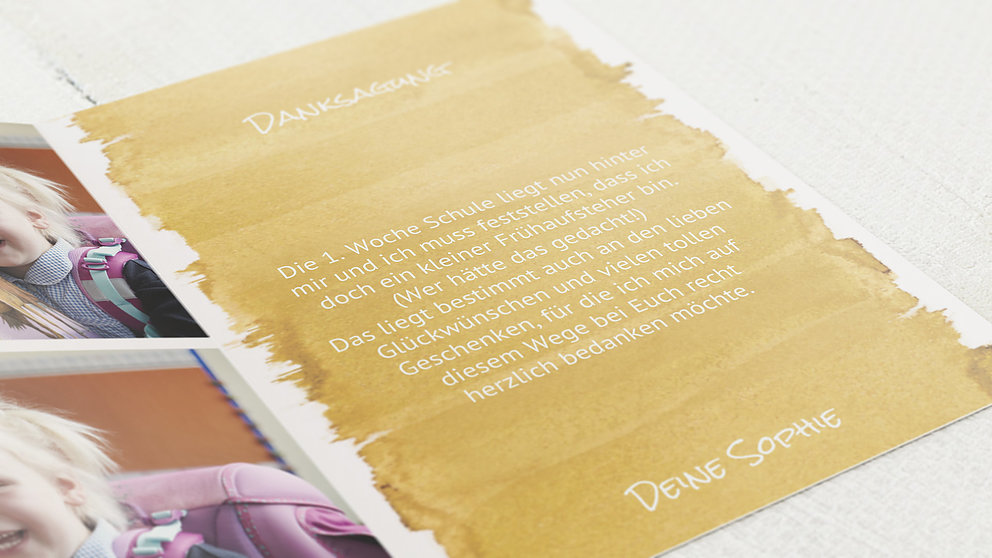 DANKSAGUNG
Die 1. Woche Schule liegt nun hinter
mir und ich muss feststellen, dass ich
doch ein kleiner Frühaufsteher bin.
(Wer hätte das gedacht!)
Das liegt bestimmt auch an den lieben
Glückwünschen und vielen tollen
Geschenken, für die ich mich auf
diesem Wege bei Euch recht
herzlich bedanken möchte.
DEINE SOPHIE